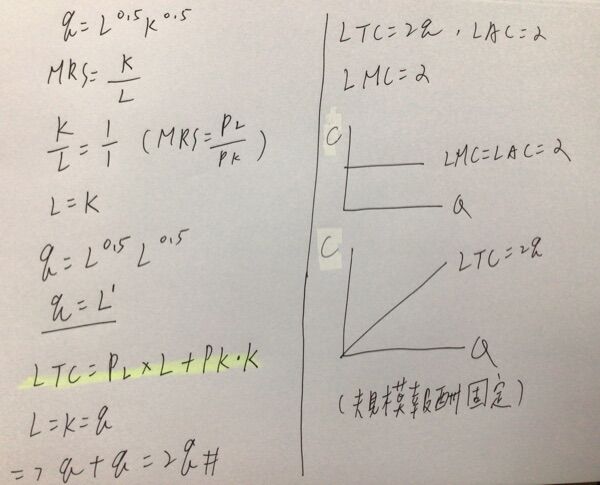 q = L^0.5 K^0.5
MRS = K/L
K/L = 1/1 (MRS = PL/PK)
L = K
q = L^0.5 L^0.5
q = L^1
LTC = PL × L + PK · K
L = K = q
=> q + q = 2q #
LTC = 2q , LAC = 2
LMC = 2
C
LMC = LAC = 2
Q
C
LTC = 2q
Q
(規模報酬固定)